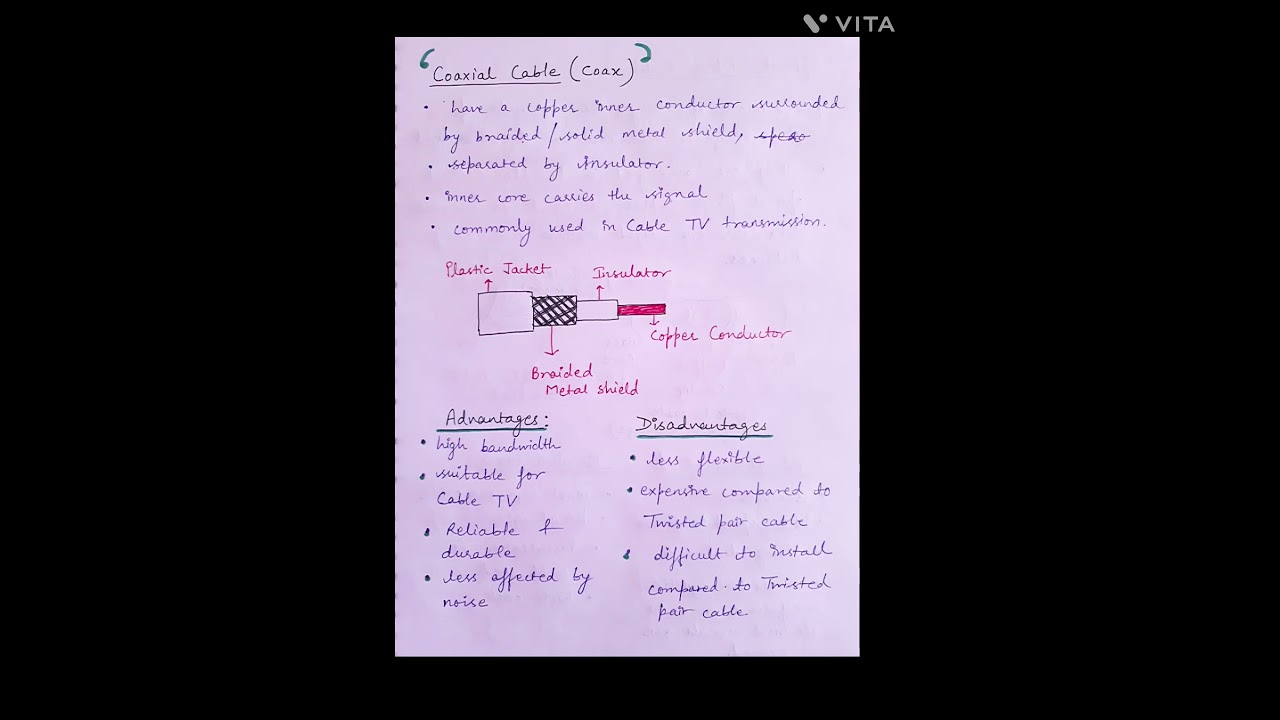 VITA
Coaxial Cable (Coax)
• have a copper inner conductor surrounded
by braided/solid metal shield,
• separated by insulator.
• inner core carries the signal
• commonly used in Cable TV transmission.
Plastic Jacket
Insulator
Copper Conductor
Braided
Metal shield
Advantages:
• high bandwidth
• suitable for
Cable TV
• Reliable &
durable
• less affected by
noise
Disadvantages
• less flexible
• expensive compared to
Twisted pair cable
• difficult to install
compared to Twisted
pair cable